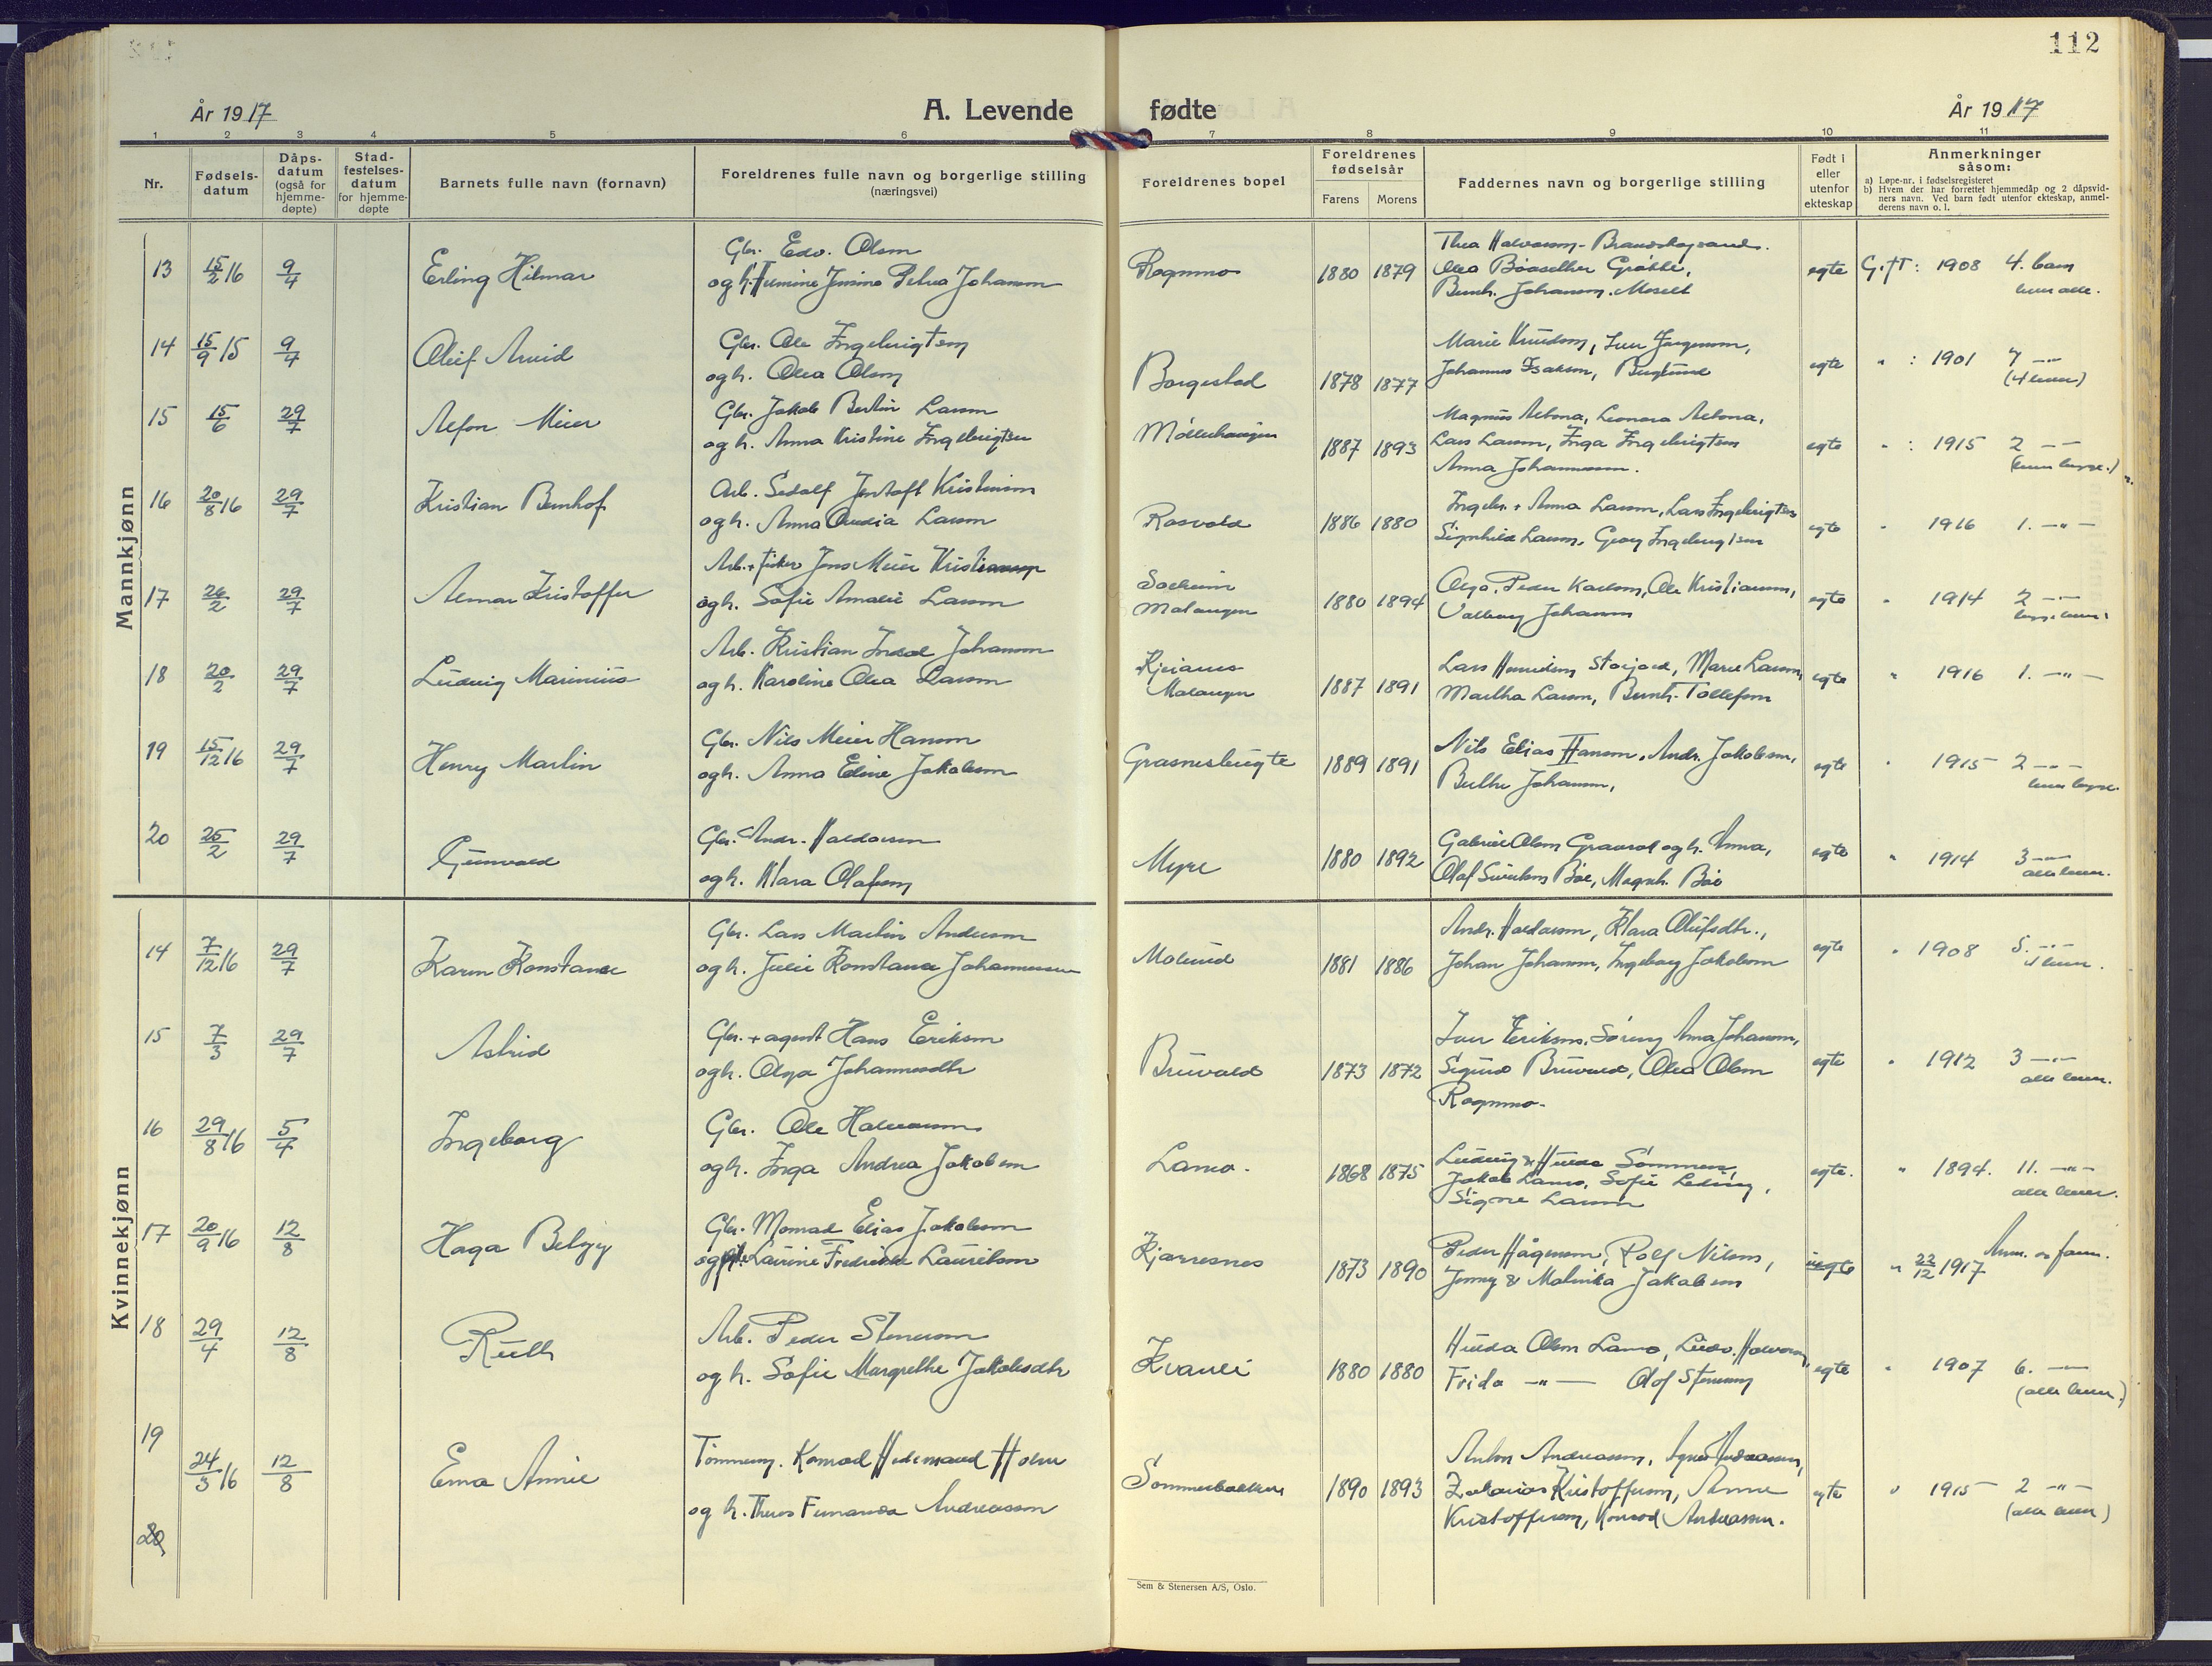 112
År 1917
A. Levende
fødte
År 1917
1 2 3 4 5 6 7 8 9 10 11
Nr.
Fødsels-
datum
Dåps-
datum
(også for
hjemme-
døpte)
Stad-
festelses-
datum
for hjemme-
døpte
Barnets fulle navn (fornavn)
Foreldrenes fulle navn og borgerlige stilling
(næringsvei)
Foreldrenes bopel
Foreldrenes
fødselsår
Farens Morens
Faddernes navn og borgerlige stilling
Født i
eller
utenfor
ekteskap
Anmerkninger
såsom:
a) Løpe-nr. i fødselsregisteret
b) Hvem der har forrettet hjemmedåp og 2 dåpsvid-
ners navn. Ved barn født utenfor ekteskap, anmel-
derens navn o. l.
Mannkjønn
Gbr. Edv. Olsen
13 15/2 16 9/4 Erling Hilmar
og h. Jensine Petrea Johansen
Rognmo 1880 1879
Bernh. Johansen
egte Gift: 1908 4. barn
14 15/9 15 9/4 Oleif Arvid
Gbr. Ole Ingebrigtsen
og h. Olea Olsen
Borgestad 1878 1877
Marie Knudsen, Iver Jørgensen,
Johannes Isaksen, Berglund
egte " : 1901 7 -"-
(4 lever)
15 15/6 29/7 Alfon Meier
Gbr. Jakob Bertin Larsen
og h. Anna Kristine Ingebrigtsen
Møllehaugen 1887 1893
Lars Larsen, Inga Ingebrigtsen
Anna Johannessen.
egte " : 1915 2 -"-
(lever begge.)
16 20/8 16 29/7 Kristian Bernhof
Arb. Sedolf Jentoft Kristiansen
og h. Anna Larsen
Rosvold 1886 1880
Ingebr. + Anna Larsen, Lars Ingebrigtsen
Signhild Larsen, Georg Ingebrigtsen
egte " 1916 1. -"-
17 26/2 29/7 Almar Kristoffer
Arb. + fisker Jens Meier Kristiansen
og h. Sofie Amalie Larsen
Malangen 1880 1894
Olga, Peder Karlsen, Ole Kristiansen,
Valborg Johansen
egte " 1914 2 -"-
begge lever.
18 20/2 29/7 Ludvig Marinius
Arb. Kristian Johansen
og h. Karoline Olea Larsen
Malangen 1887 1891
Marie Larsen,
Martha Larsen, Bernh. Tollefsen
egte " 1916 1. -"-
19 15/12 16 29/7 Henry Martin
Gbr. Nils Meier Hansen
og h. Anna Edine Jakobsen
Grasnesbugte 1889 1891
Nils Elias Hansen, Andr. Jakobsen,
Berthe Johansen,
egte " 1915 2 -"-
lever begge.
20 25/2 29/7 Gunvald
Gbr. Andr. Haldorsen
og h. Klara Olafsen
Myre 1880 1892
Gabriel Olsen og h. Anna,
Olaf Sivertsen Bøe, Magnh. Bøe
egte " 1914 3 -"-
alle lever.
Kvinnekjønn
14 7/12 16 29/7 Karen Konstanse
Gbr. Lars Martin Andersen
og h. Julie Konstanse Johannessen
Molund 1881 1886
Andr. Haldorsen, Klara Olufsdtr.,
Johan Johansen, Ingeborg Jakobsen
egte " 1908 5. -"-
15 7/3 29/7 Astrid
Gbr. + agent Hans Eriksen
og h. Olga Johannesdtr
Bruvold 1873 1872
Iver Eriksen, Søren, Anna Johansen,
Sigurd Bruvold, Olea Olsen
Rognmo.
egte " 1912 3 -"-
alle lever.
16 29/8 16 5/4 Ingeborg
Gbr. Ole Halvorsen
og h. Inga Andrea Jakobsen
Lamo. 1868 1875
Ludvig & Hulda
Jakob Lamo, Sofie
Signe Larsen
egte. " 1894. 11. -"-
alle lever.
17 20/9 16 12/8 Haga Belzy
Gbr. Monrad Elias Jakobsen
og Laurine Fredrikke Lauritsen
Kjærresnes 1873 1890
Peder Hågensen, Rolf Nilsen,
Jenny & Malvika Jakobsen
uegte " 22/12 1917
18 29/4 12/8 Ruth
Arb. Peder Stenersen
og h. Sofie Margrethe Jakobsdtr
Kvanli 1880 1880
Hulda Olsen Lamo, Ludv. Halvorsen,
Frida -"- Olaf Stenersen
egte " 1907 6. -"-
(alle lever.)
19 24/3 16 12/8 Erna Annie
Tømmerm. Konrad Holm
og h. Andreassen
Sommerbakken 1890 1893
Anton Andreassen, Agnes Andreassen,
Zakarias Kristoffersen, Anne
Kristoffersen, Konrad Andreassen.
egte " 1915 2 -"-
(alle lever)
20
Sem & Stenersen A/S, Oslo.